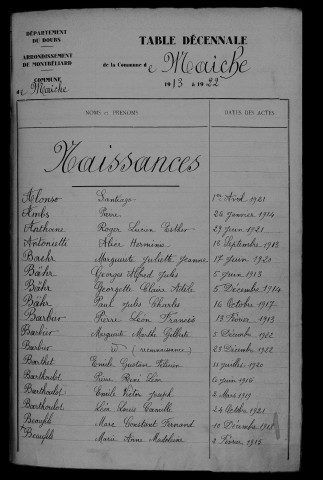 DÉPARTEMENT
DU DOUBS
ARRONDISSEMENT
DE MONTBÉLIARD
COMMUNE
de Maîche
TABLE DÉCENNALE
de la Commune de Maîche
1913 à 1922
NOMS ET PRÉNOMS DATES DES ACTES
Naissances
Alonso Santiago 1er Avril 1921
Ambs Pierre 24 Janvier 1914
Anthoine Roger Lucien Esther 29 Juin 1921
Antonietti Alice Herminie 18 Septembre 1913
Baehr Marguerite Juliette Jeanne 17 Juin 1920
Bähr Georges Alfred Jules 5 Juin 1913
Bähr Georgette Claire Adèle 5 Décembre 1914
Bähr Paul Jules Charles 16 Octobre 1917
Barbier Pierre Léon François 13 Février 1913
Barbier Marguerite Marthe Gilberte 3 Décembre 1922
Barbier d° (reconnaissance) 23 Décembre 1922
Barthet Emile Gustave 10 Juillet 1920
Barthoulot Pierre René Léon 6 Juin 1916
Barthoulot Emile Victor Joseph 2 Mars 1919
Barthoulot Léon Louis Camille 24 Octobre 1921
Beaufils Marc Constant Fernand 10 Décembre 1913
Beaufils Marie Anne Madeleine 2 Février 1915